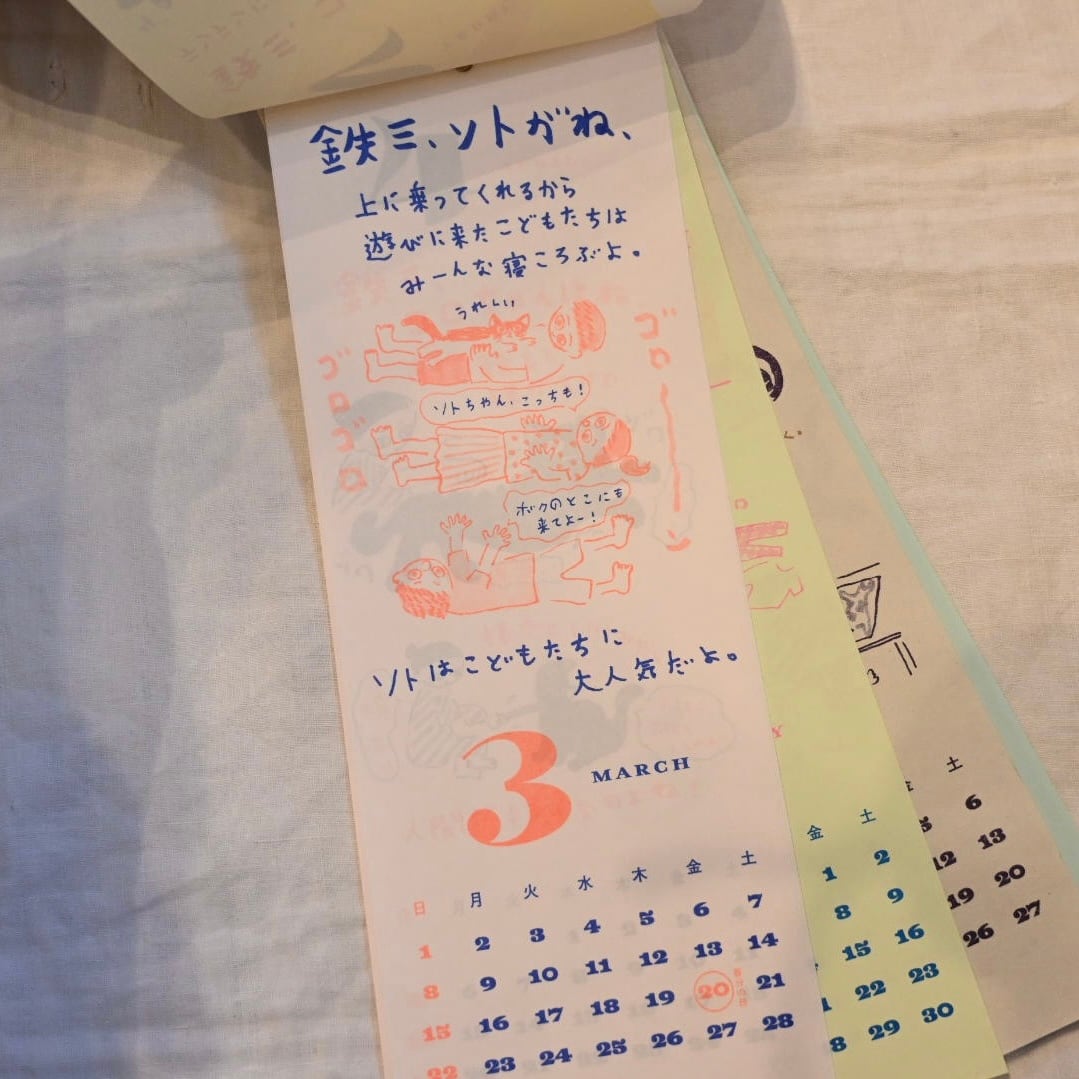 鉄三、ソトがね、
上に乗ってくれるから
遊びに来たこどもたちは
みーんな寝ころぶよ。
うれしい
ゴロゴロ
ゴローーン
ソトちゃん、こっちも!
ボクのとこにも
来てよー!
ソトはこどもたちに
大人気だよ。
3 MARCH
日 月 火 水 木 金 土
1 2 3 4 5 6 7
8 9 10 11 12 13 14
15 16 17 18 19 20 春分の日 21
22 23 24 25 26 27 28
金 土
1 2
8 9
15 16
22 23
29 30
土
6
12 13
19 20
26 27